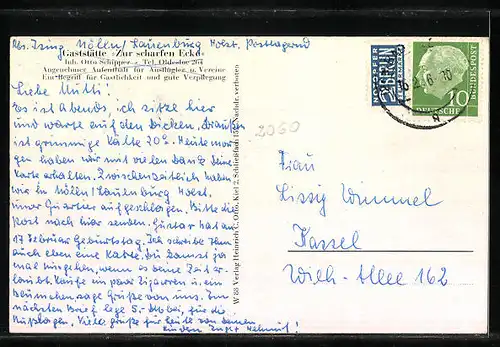 Abs. Mölln/Lauenburg Holst. Postlagernd
Gaststätte »Zur scharfen Ecke«
Inh. Otto Schipper - Tel. Oldesloe 264
Angenehmer Aufenthalt für Ausflügler u. Vereine
Ein Begriff für Gastlichkeit und gute Verpflegung
Liebe Mutti!
Es ist Abends, ich sitze hier
und warte auf den Dicken, draußen
ist grimmige Kälte 20°. Heute mor-
gen haben wir mit vielen Dank deine
Karte erhalten. Zwischenzeitlich haben
wir in Mölln/Lauenburg Holst.
unser Quartier aufgeschlagen. Bitte die
Post nach hier senden. Gustav hat am
17 Februar Geburtstag. Ich schreibe ihm
auch eben eine Karte. Du kannst ja
mal hingehen, wenn es deine Zeit er-
laubt. Kaufe ein paar Zigarren u. ein
Blümchen, sage Grüße von uns. Im
nächsten Brief lege 5.- DM bei, für die
Auslagen. Viele Grüße für heute von deinen
Helmut!
W 53 Verlag Heinrich C. Otto, Kiel 2, Schließfach Nachdr. verboten
2050
NOTOPFER
2 BERLIN
STEUERMARKE
DEUTSCHE BUNDESPOST
10
Frau
Lissig Wimmel
Kassel
Wilh.-Allee 162